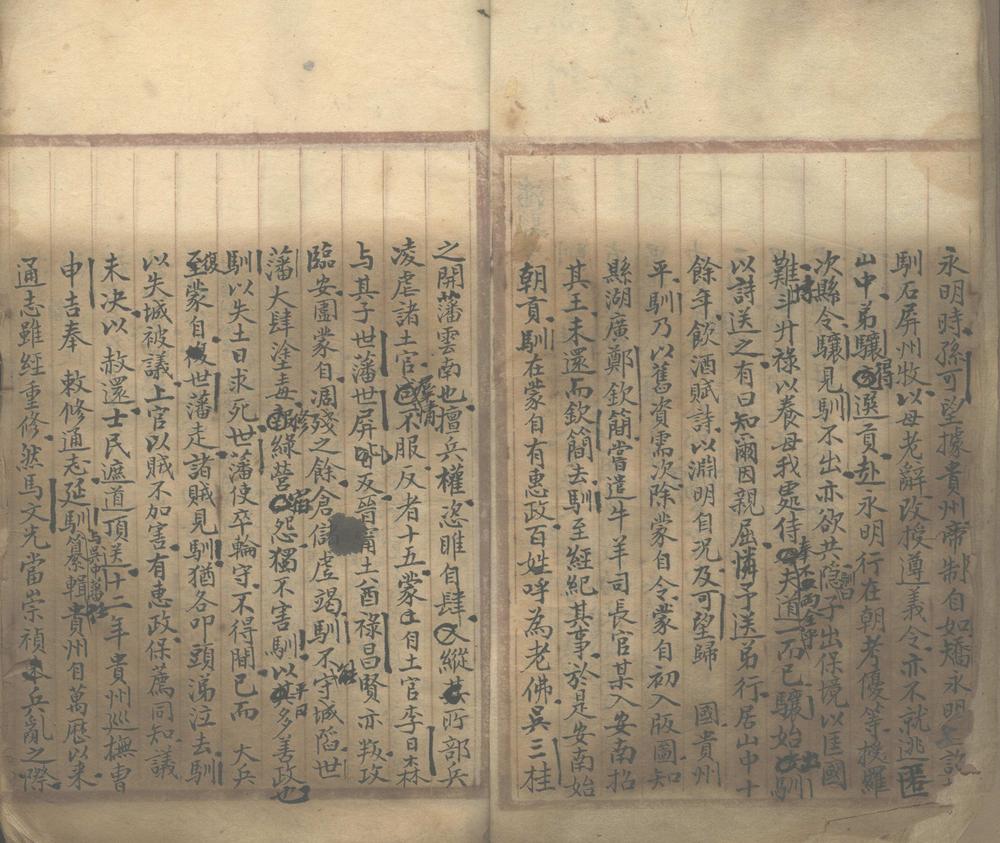 永明時孫可望據貴州帝制自如矯永明
馴石屏州牧以母老辭改授遵義令亦不就逃匿
山中弟驤得選貢赴永明行在朝考優等授羅
次縣令驤見馴不出亦欲共隱馴曰子出保境以匡國
難斗升祿以養母我處侍奉天道而已驤始出馴
以詩送之有曰知爾因親屈憐予送弟行居山中十
餘年飲酒賦詩以淵明自況及可望歸 國貴州
平馴乃以舊資需次除蒙自令蒙自初入版圖知
縣湖廣鄭欽簡嘗遣牛羊司長官某入安南招
其王未還而欽簡去馴至經紀其事於是安南始
朝貢馴在蒙自有惠政百姓呼為老佛吳三桂
之開藩雲南也擅兵權恣睢自肆縱所部兵
凌虐諸土官群情不服反者十五蒙自土官李日森
与其子世藩世屏及晉甯土酋祿昌賢亦叛攻
臨安圍蒙自凋殘之餘倉儲虛竭馴不守城陷世
藩大肆塗毒綠營怨獨不害馴以平日多善政也
馴以失土日求死世藩使卒輪守不得間已而 大兵
至復蒙自世藩走諸賊見馴猶各叩頭涕泣去馴
以失城被議上官以賊不加害有惠政保薦同知議
未决以 赦還士民遮道頂送十二年貴州巡撫曹
申吉奉 敕修通志延馴与吳中蕃纂輯貴州自萬厯以來
通志雖經重修然馬文光當崇禎末兵亂之際